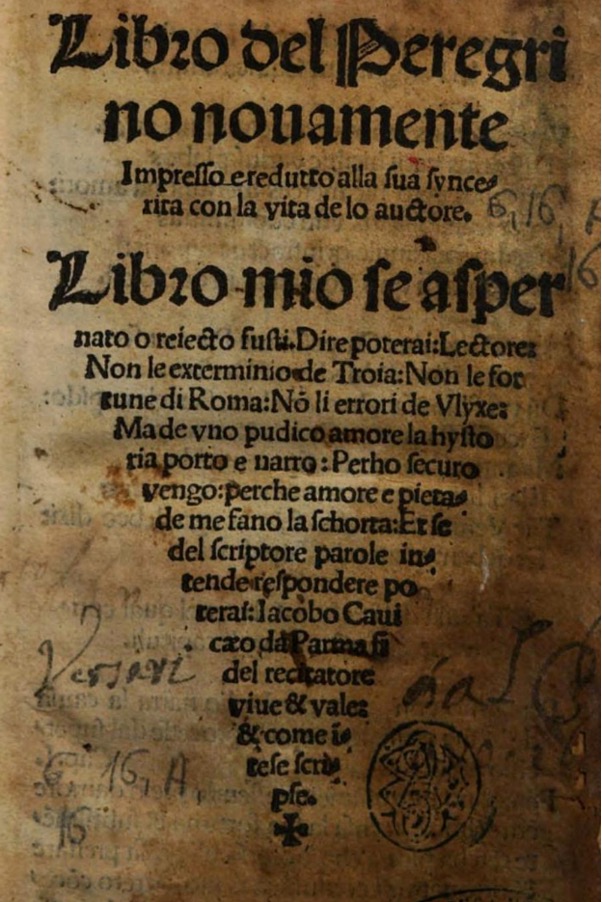 Libro del Peregri
no novamente
Impresso e redutto alla sua synce-
rita con la vita de lo auctore.
6,16, A
16
Libro mio se asper
nato o reiecto fusti. Dire poterai: Lectore:
Non le exterminio de Troia: Non le for
tune di Roma: Nō li errori de Vlyxe:
Ma de vno pudico amore la hysto
ria porto e narro: Perho securo
vengo: perche amore e pieta-
de me fano la schorta: Et se
del scriptore parole in-
tende respondere po
terai: Iacobo Caui
cæo da Parma si
del recitatore
viue & vale:
& come ī-
tese scri-
pse.
6, 16, A
16